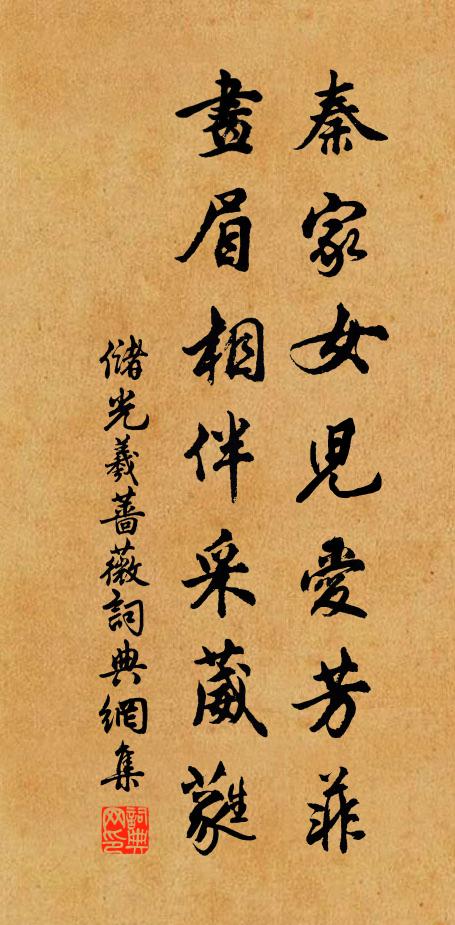 秦家女兒愛芳菲
畫眉相伴采葳蕤
儲光羲薔薇詞典網集
詞典
网印